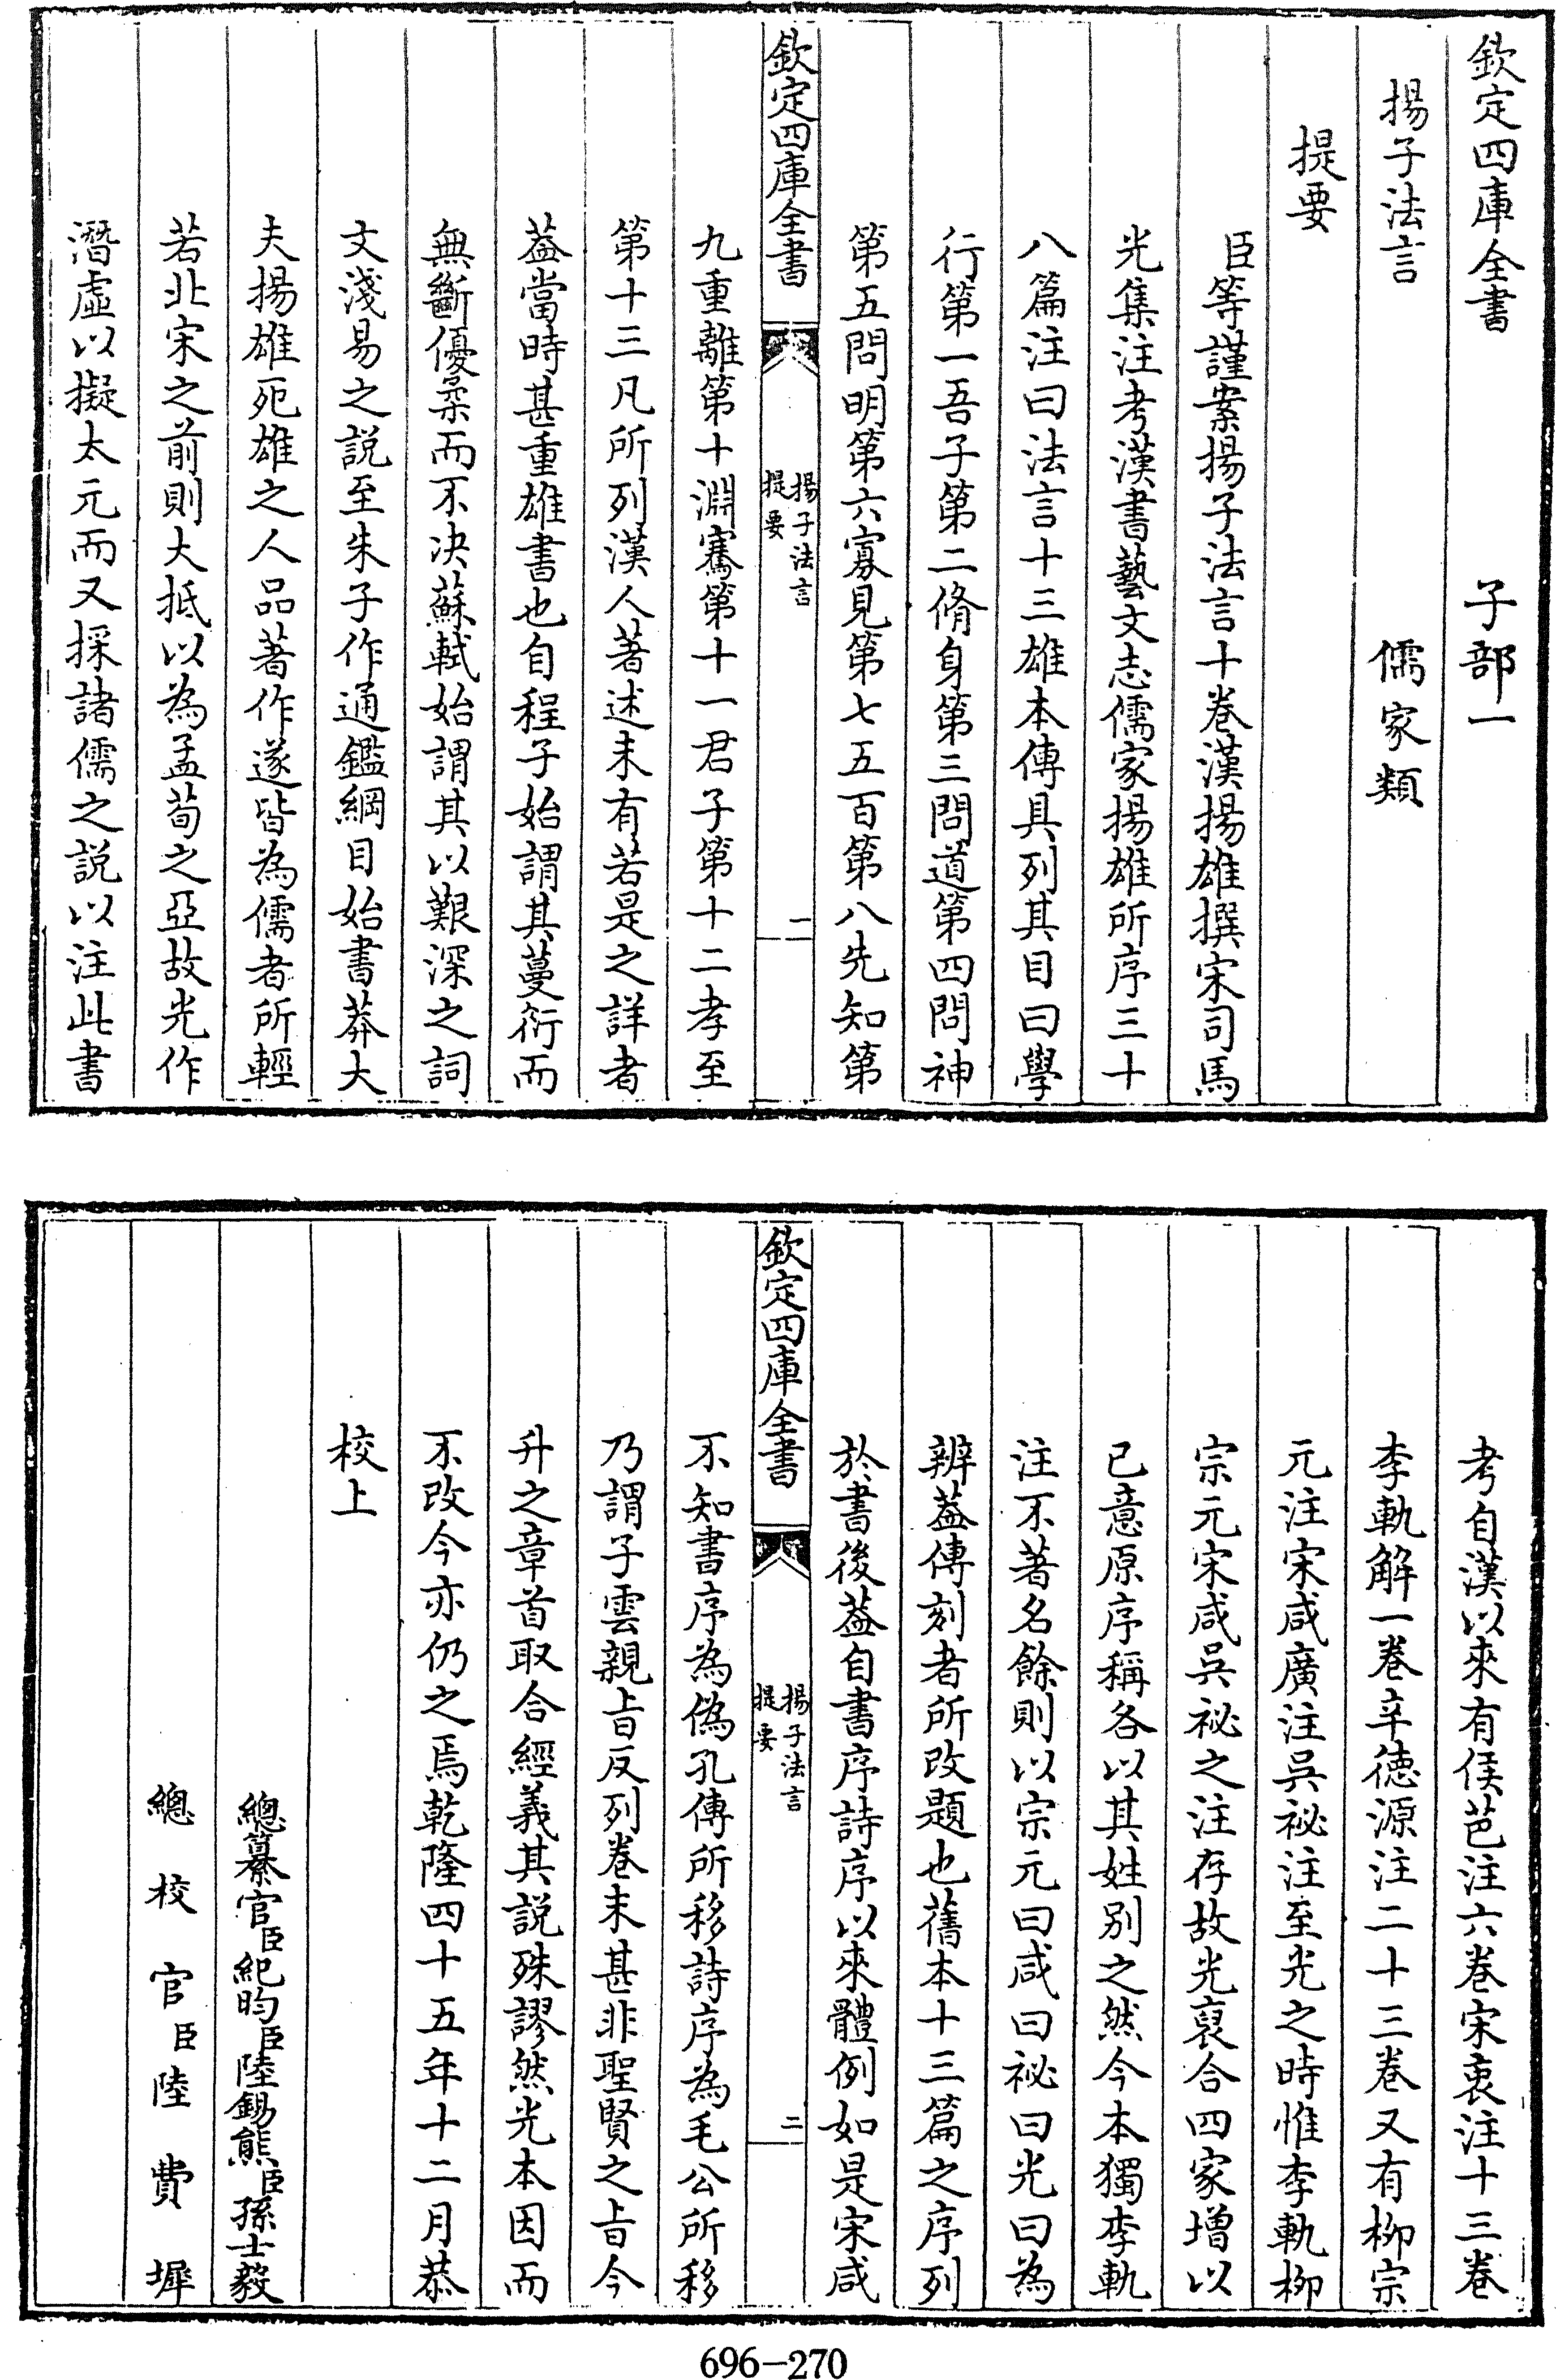 欽定四庫全書　　　子部一
揚子法言　　　　儒家類
提要
臣等謹案揚子法言十卷漢揚雄撰宋司馬
光集注考漢書藝文志儒家揚雄所序三十
八篇注曰法言十三雄本傳具列其目曰學
行第一吾子第二脩身第三問道第四問神
第五問明第六寡見第七五百第八先知第
欽定四庫全書　揚子法言提要　一
九重離第十淵騫第十一君子第十二孝至
第十三凡所列漢人著述未有若是之詳者
葢當時甚重雄書也自程子始謂其蔓衍而
無斷優柔而不決蘇軾始謂其以艱深之詞
文淺易之説至朱子作通鑑綱目始書莽大
夫揚雄死雄之人品著作遂皆為儒者所輕
若北宋之前則大抵以為孟荀之亞故光作
潛虛以擬太元而又採諸儒之説以注此書
考自漢以來有侯芭注六卷宋衷注十三卷
李軌解一卷辛德源注二十三卷又有柳宗
元注宋咸廣注吳祕注至光之時惟李軌柳
宗元宋咸吳祕之注存故光裒合四家增以
已意原序稱各以其姓別之然今本獨李軌
注不著名餘則以宗元曰咸曰祕曰光曰為
辨葢傳刻者所改題也舊本十三篇之序列
於書後葢自書序詩序以來體例如是宋咸
欽定四庫全書　揚子法言提要　二
不知書序為偽孔傳所移詩序為毛公所移
乃謂子雲親旨反列卷末甚非聖賢之旨今
升之章首取合經義其説殊謬然光本因而
不改今亦仍之焉乾隆四十五年十二月恭
校上
總纂官臣紀昀臣陸錫熊臣孫士毅
總校官臣陸費墀
696-270